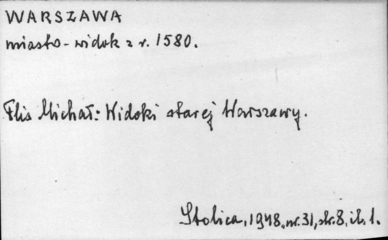 WARSZAWA
miasto - widok z r. 1580.
Flis Michał: Widoki starej Warszawy.
Stolica, 1948, nr. 31, str. 8, il. 1.